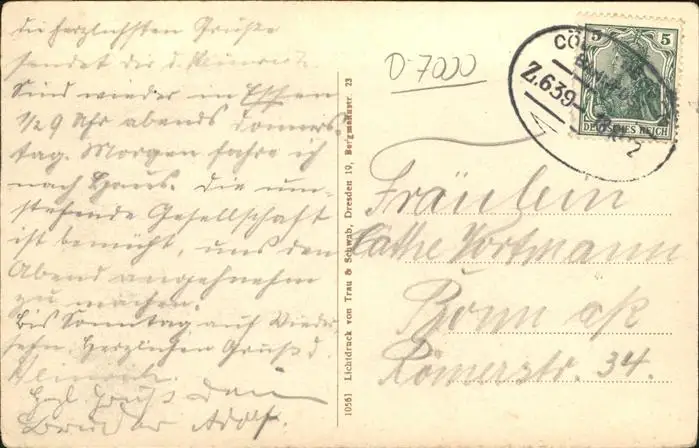 die herzlichsten Grüße
sendet dir d.
Sind wieder in Essen
1/2 9 Uhr abends Donners
tag. Morgen fahre ich
nach Haus. Die um-
stehende Gesellschaft
ist bemüht, uns den
Abend angenehm
zu machen.
Bis Sonntag auf Wieder
sehn. Herzlichen Gruß d.
Hzl. Gruß Dein
Bruder Adolf.
10561 Lichtdruck von Trau & Schwab, Dresden 19, Bergmannstr. 23
D 7000
5 5
DEUTSCHES REICH
CÖL
Z.639
Fräulein
Käthe Vortmann
Bonn a/R
Römerstr. 34.